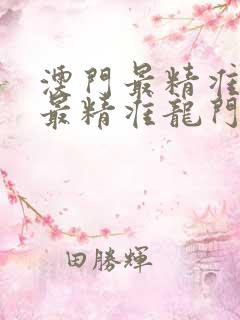 澳門最精准
最精准龍門
田勝輝